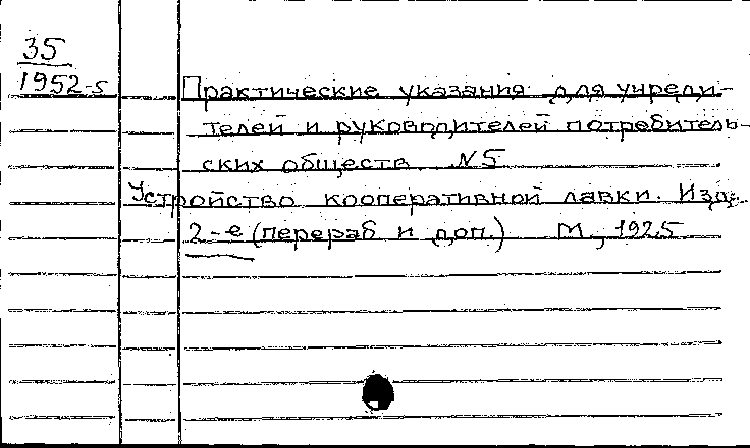 35
1952-5
Практические указания для учреди-
телей и руководителей потребитель-
ских обществ №5
Устройство кооперативной лавки. Изд.
2-е (перераб и доп.) М., 1925